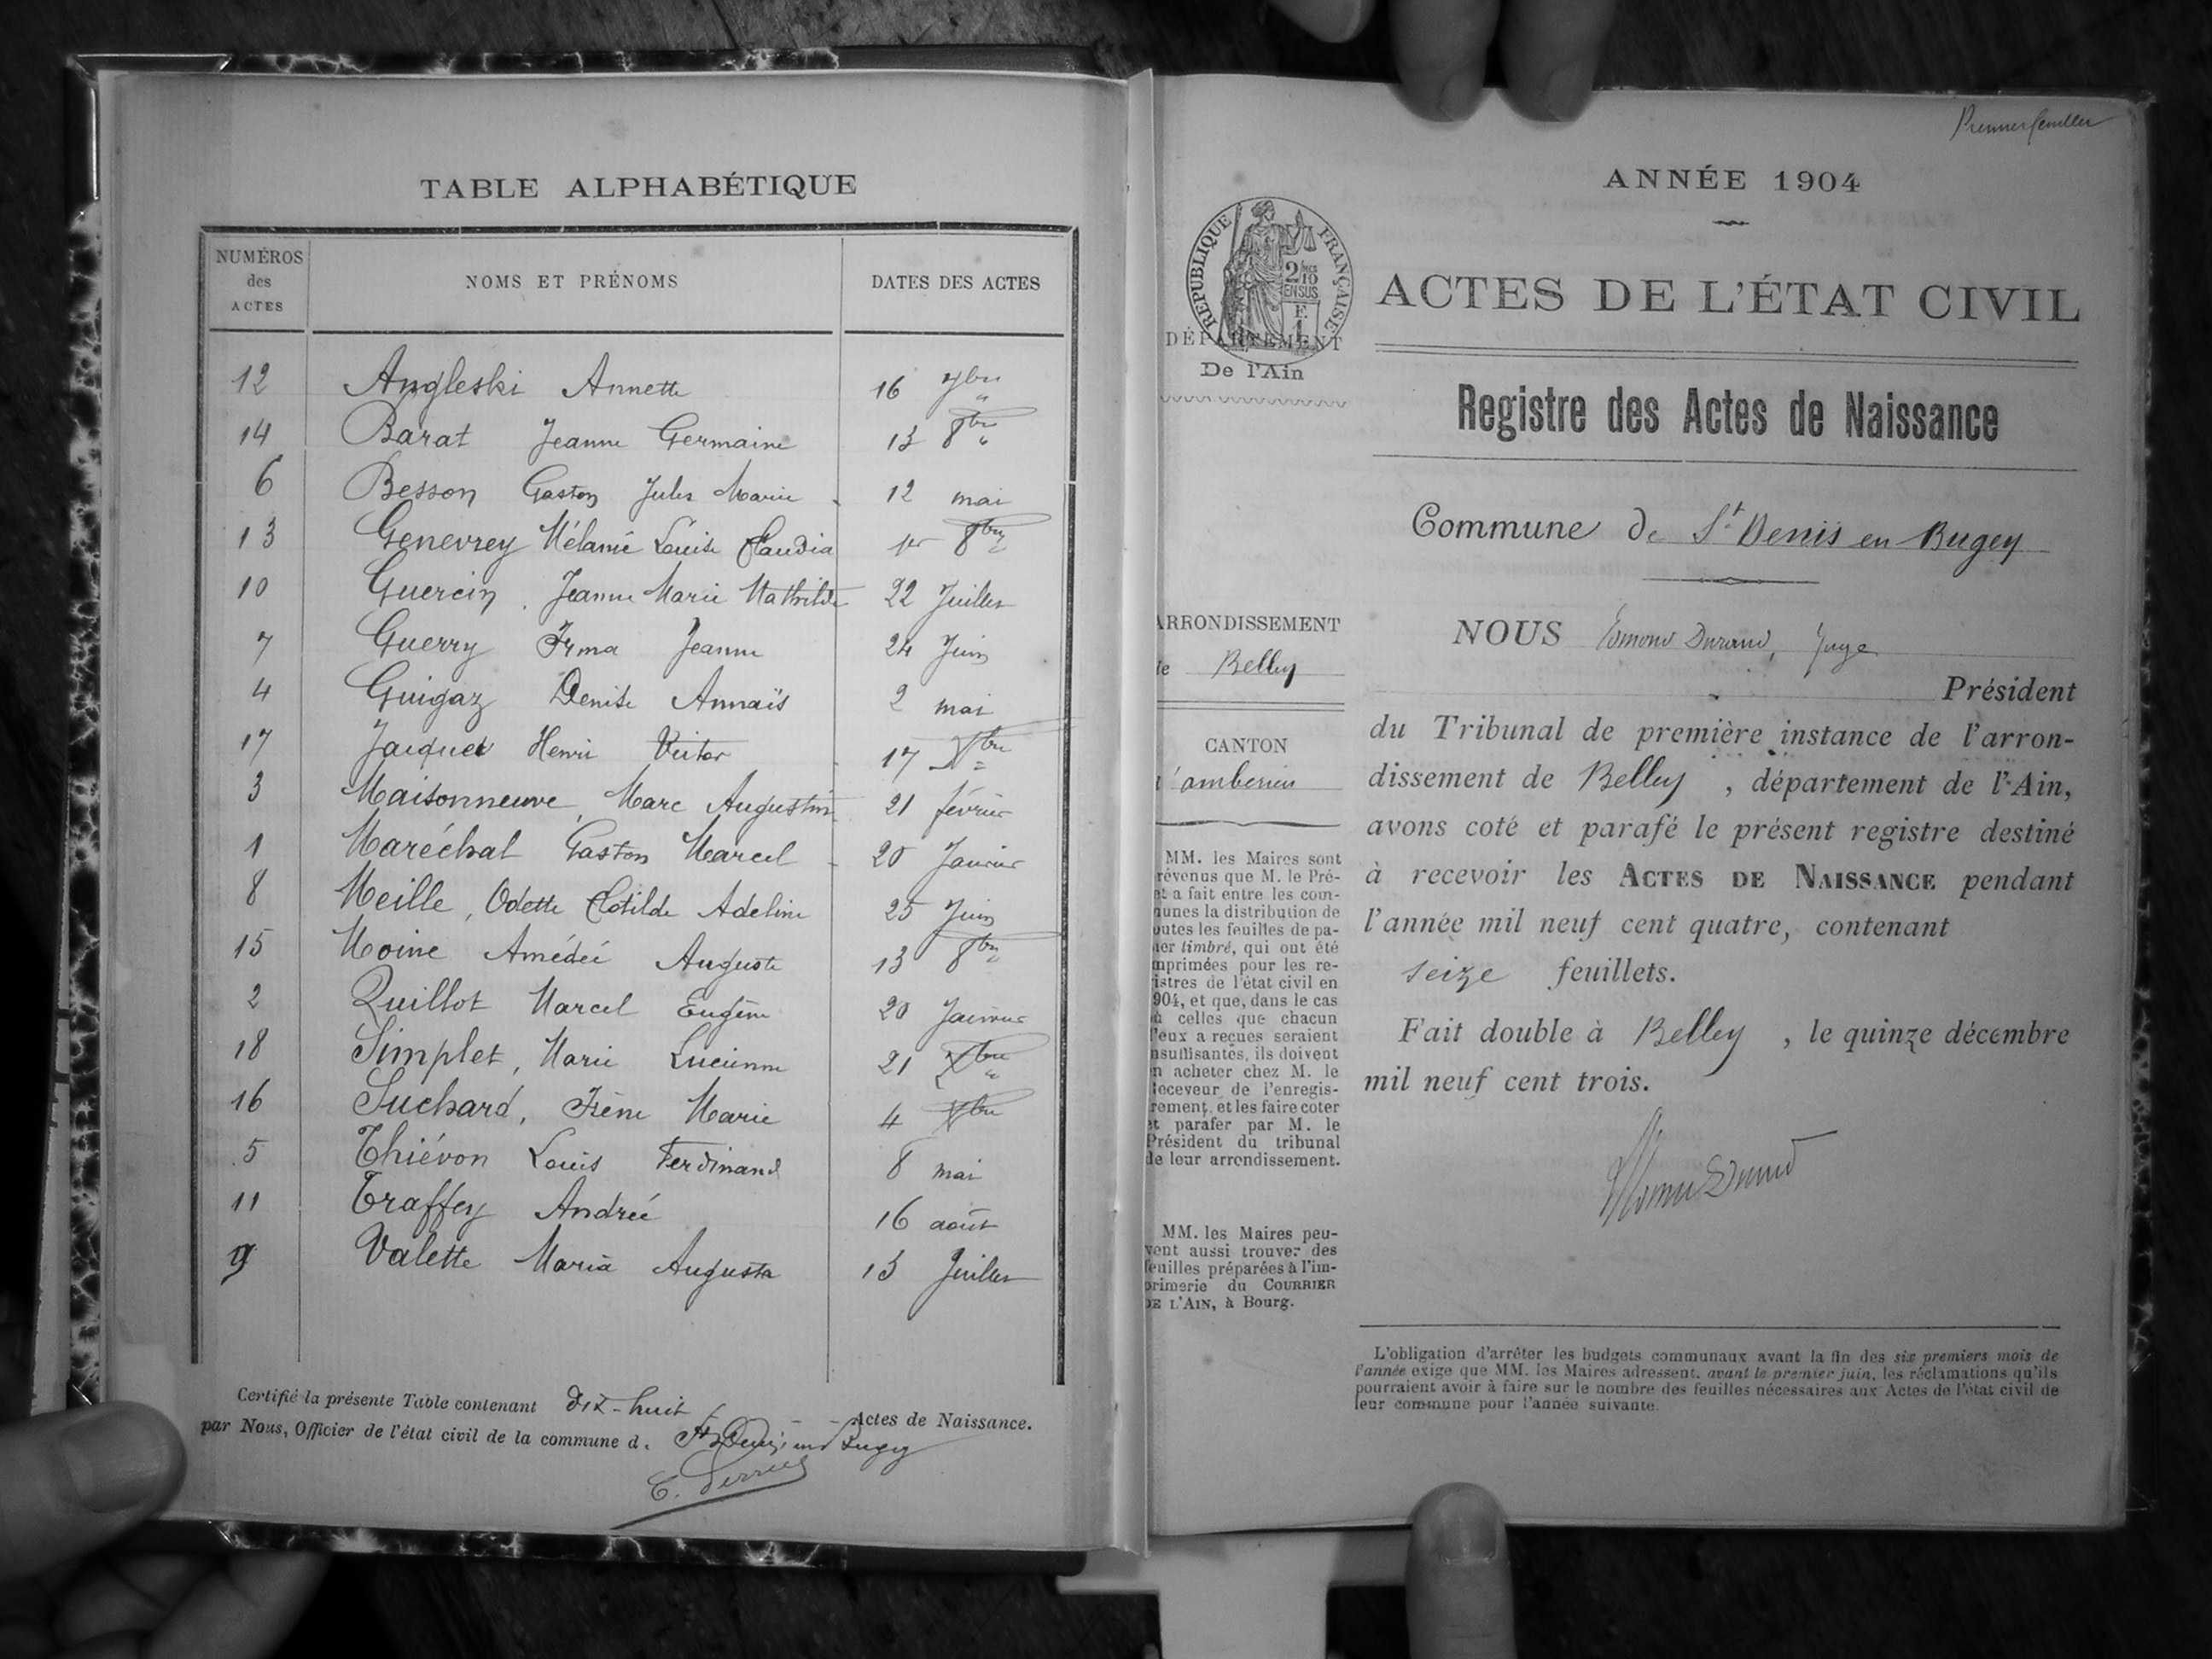 TABLE ALPHABÉTIQUE
NUMÉROS des ACTES
NOMS ET PRÉNOMS
DATES DES ACTES
12 Angleski Annette 16 7bre "
14 Barat Jeanne Germaine 13 8bre "
6 Besson Gaston Jules Marie 12 mai
13 Genevrey Mélanie Louise Claudia 1er 8bre
10 Guercin, Jeanne Marie Mathilde 22 Juillet
7 Guerry Irma Jeanne 24 Juin
4 Guigaz Denise Annaïs 2 mai
17 Jacquet Henri Victor 17 Xbre
3 Maisonneuve, Marc Augustin 21 février
1 Maréchal Gaston Marcel 20 Janvier
8 Meille, Odette Clotilde Adeline 25 Juin
15 Moine Amédée Auguste 13 8bre
2 Quillot Marcel Eugène 20 Janvier
18 Simplet, Marie Lucienne 21 Xbre "
16 Suchard, Irène Marie 4 Xbre
5 Thiévon Louis Ferdinand 8 mai
11 Traffey Andrée 16 août
9 Valette Maria Augusta 13 Juillet
Certifié la présente Table contenant dix-huit Actes de Naissance.
par Nous, Officier de l'état civil de la commune d. St Denis en Bugey
Premier feuillet
ANNÉE 1904
RÉPUBLIQUE FRANÇAISE
ACTES DE L'ÉTAT CIVIL
DÉPARTEMENT
De l'Ain
Registre des Actes de Naissance
Commune de St Denis en Bugey
ARRONDISSEMENT
de Belley
CANTON
d'amberieu
MM. les Maires sont
révenus que M. le Pré-
et a fait entre les com-
nunes la distribution de
outes les feuilles de pa-
ier timbré, qui ont été
mprimées pour les re-
istres de l'état civil en
904, et que, dans le cas
ù celles que chacun
d'eux a reçues seraient
nsuffisantes, ils doivent
n acheter chez M. le
Receveur de l'enregis-
rement, et les faire coter
et parafer par M. le
Président du tribunal
de leur arrondissement.
MM. les Maires peu-
vent aussi trouver des
feuilles préparées à l'im-
primerie du COURRIER
DE L'AIN, à Bourg.
NOUS Edmond Durand, Juge
Président
du Tribunal de première instance de l'arron-
dissement de Belley, département de l'Ain,
avons coté et parafé le présent registre destiné
à recevoir les ACTES DE NAISSANCE pendant
l'année mil neuf cent quatre, contenant
seize feuillets.
Fait double à Belley, le quinze décembre
mil neuf cent trois.
L'obligation d'arrêter les budgets communaux avant la fin des six premiers mois de
l'année exige que MM. les Maires adressent, avant le premier juin, les réclamations qu'ils
pourraient avoir à faire sur le nombre des feuilles nécessaires aux Actes de l'état civil de
leur commune pour l'année suivante.